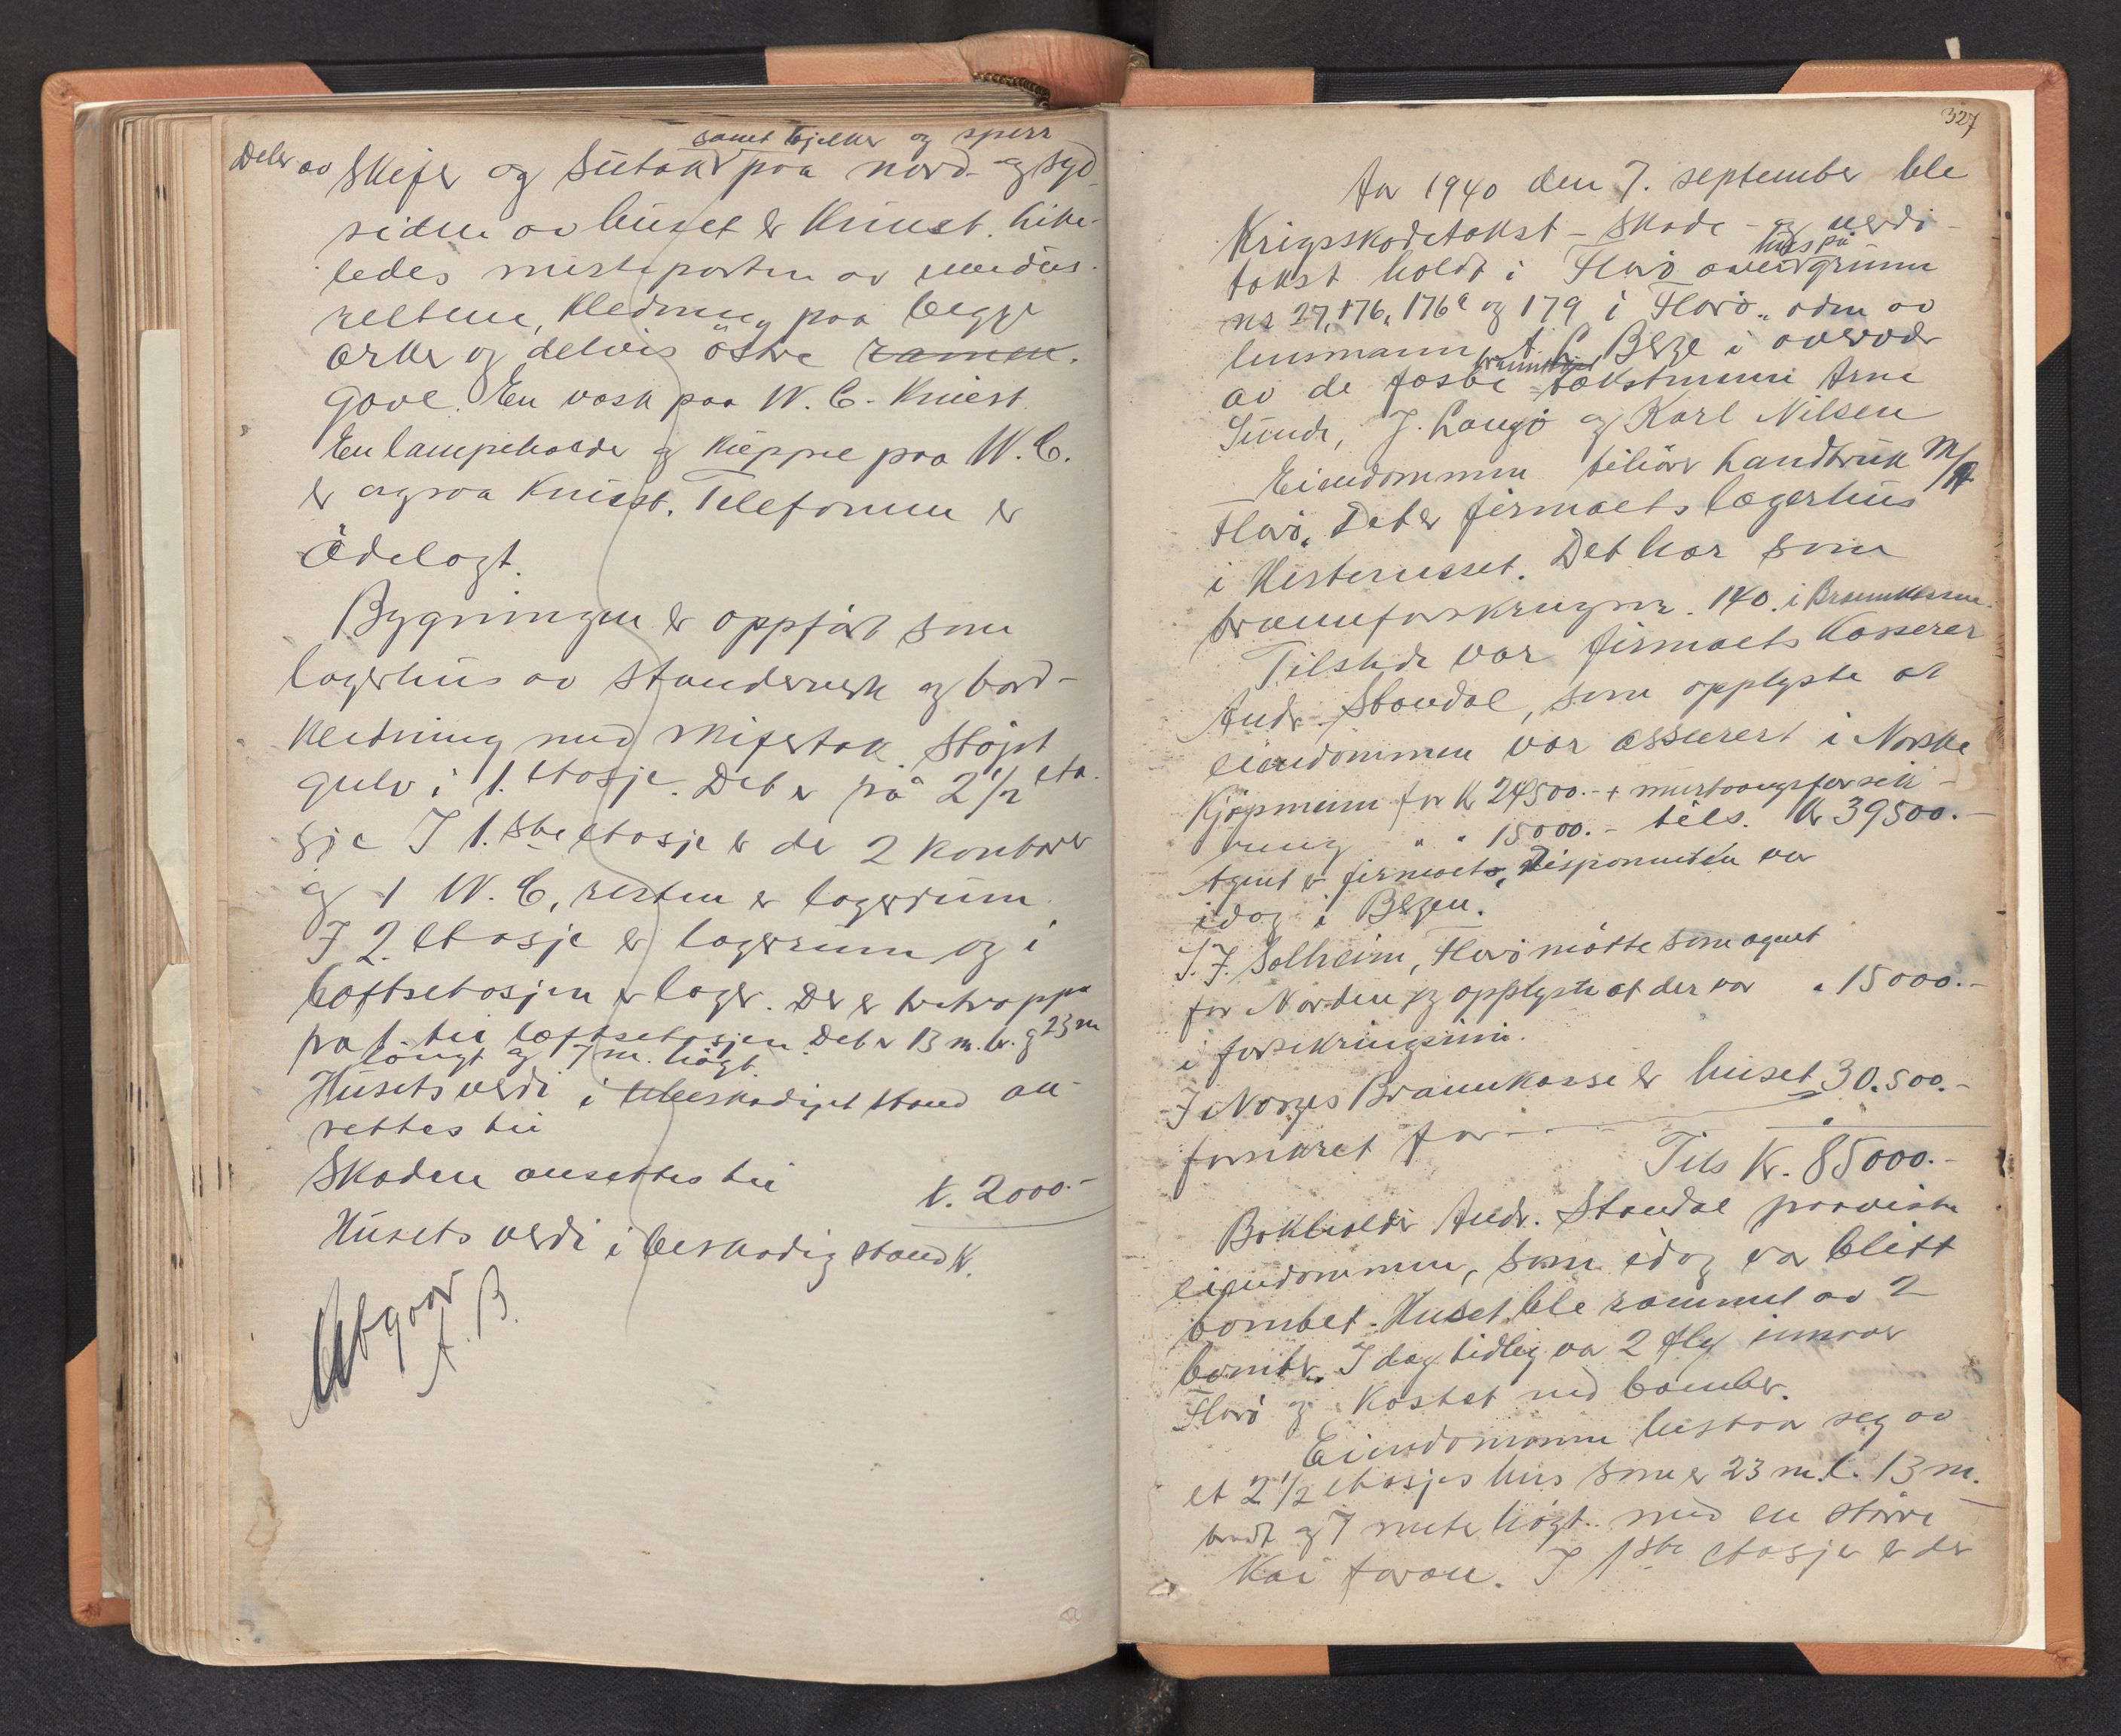 samt bjelker og sperr
Deler av Skifer og Sutak paa nord- og syd-
siden av huset er knust. Like-
ledes mesteparten av vindus-
reltene, Kledning paa begge
arker og delvis östre ramme.
gavl. En vask paa W. C. knust.
En lampeholder og kuppel paa W. C.
er ogsaa knust. Telefonen er
ödelagt.
Bygningen er oppfört som
lagerhus av standerverk og bord-
kledning med skifertak. Stöpt
gulv i 1. etasje. Det er på 2 1/2 eta-
sje I 1.ste etasje er der 2 kontorer
og 1 W. C, resten er lagerrum.
I 2. etasje er lagerrum og i
loftsetasjen er lager. Der er tretrapper
fra 1. til loftsetasjen. Det er 13 m. br. og 23 m
langt og 7 m. högt.
Husets verdi i ubeskadiget stand an-
settes til
Skaden ansettes til K. 2000.-
Husets verdi i beskadig stand K.
Utgaar
A. B.
327
Aar 1940 den 7. september ble
Krigsskadetakst - Skade - og verdi-
takst holdt i Florö over hus på grunn
nr 27, 176, 176a og 179 i Florö, adm av
lensmann A. L. Berge i overvær
av de faste branntakstmenn Arne
Sunde, J. Langö og Karl Nilsen
Eiendommen tilhörer Handbruk M/A
Florö. Det er firmaets lagerhus
i Hesteneset. Det har som
brannforsikringsnr. 140. i Brannkassen.
Tilstede var firmaets Kasserer
Andr. Standal, som opplyste at
eiendommen var assurert i Norske
Kjöpmenn for Kr 24500.- + merbrangsforsik-
ring " " 15000.- tils. Kr 39500.-
Agent er firmaets Disponenten var
idag i Bergen.
S. F. Solheim, Florö mötte som agent
for Norden og opplyste at der var " 15000.-
i forsikringssum.
I Norges Brannkasse er huset 30.500.-
forsikret for
Tils Kr. 85000.-
Bokholder Andr. Standal paaviste
eiendommen, som idag var blitt
bombet. Huset ble rammet av 2
bomber. I dag tidlig var 2 fly innover
Florö og kastet ned bomber.
Eiendommen bestaar seg av
et 2 1/2 etasjes hus som er 23 m. l. 13 m.
bredt og 7 meter högt. med en större
Kai foran. I 1ste etasje er der